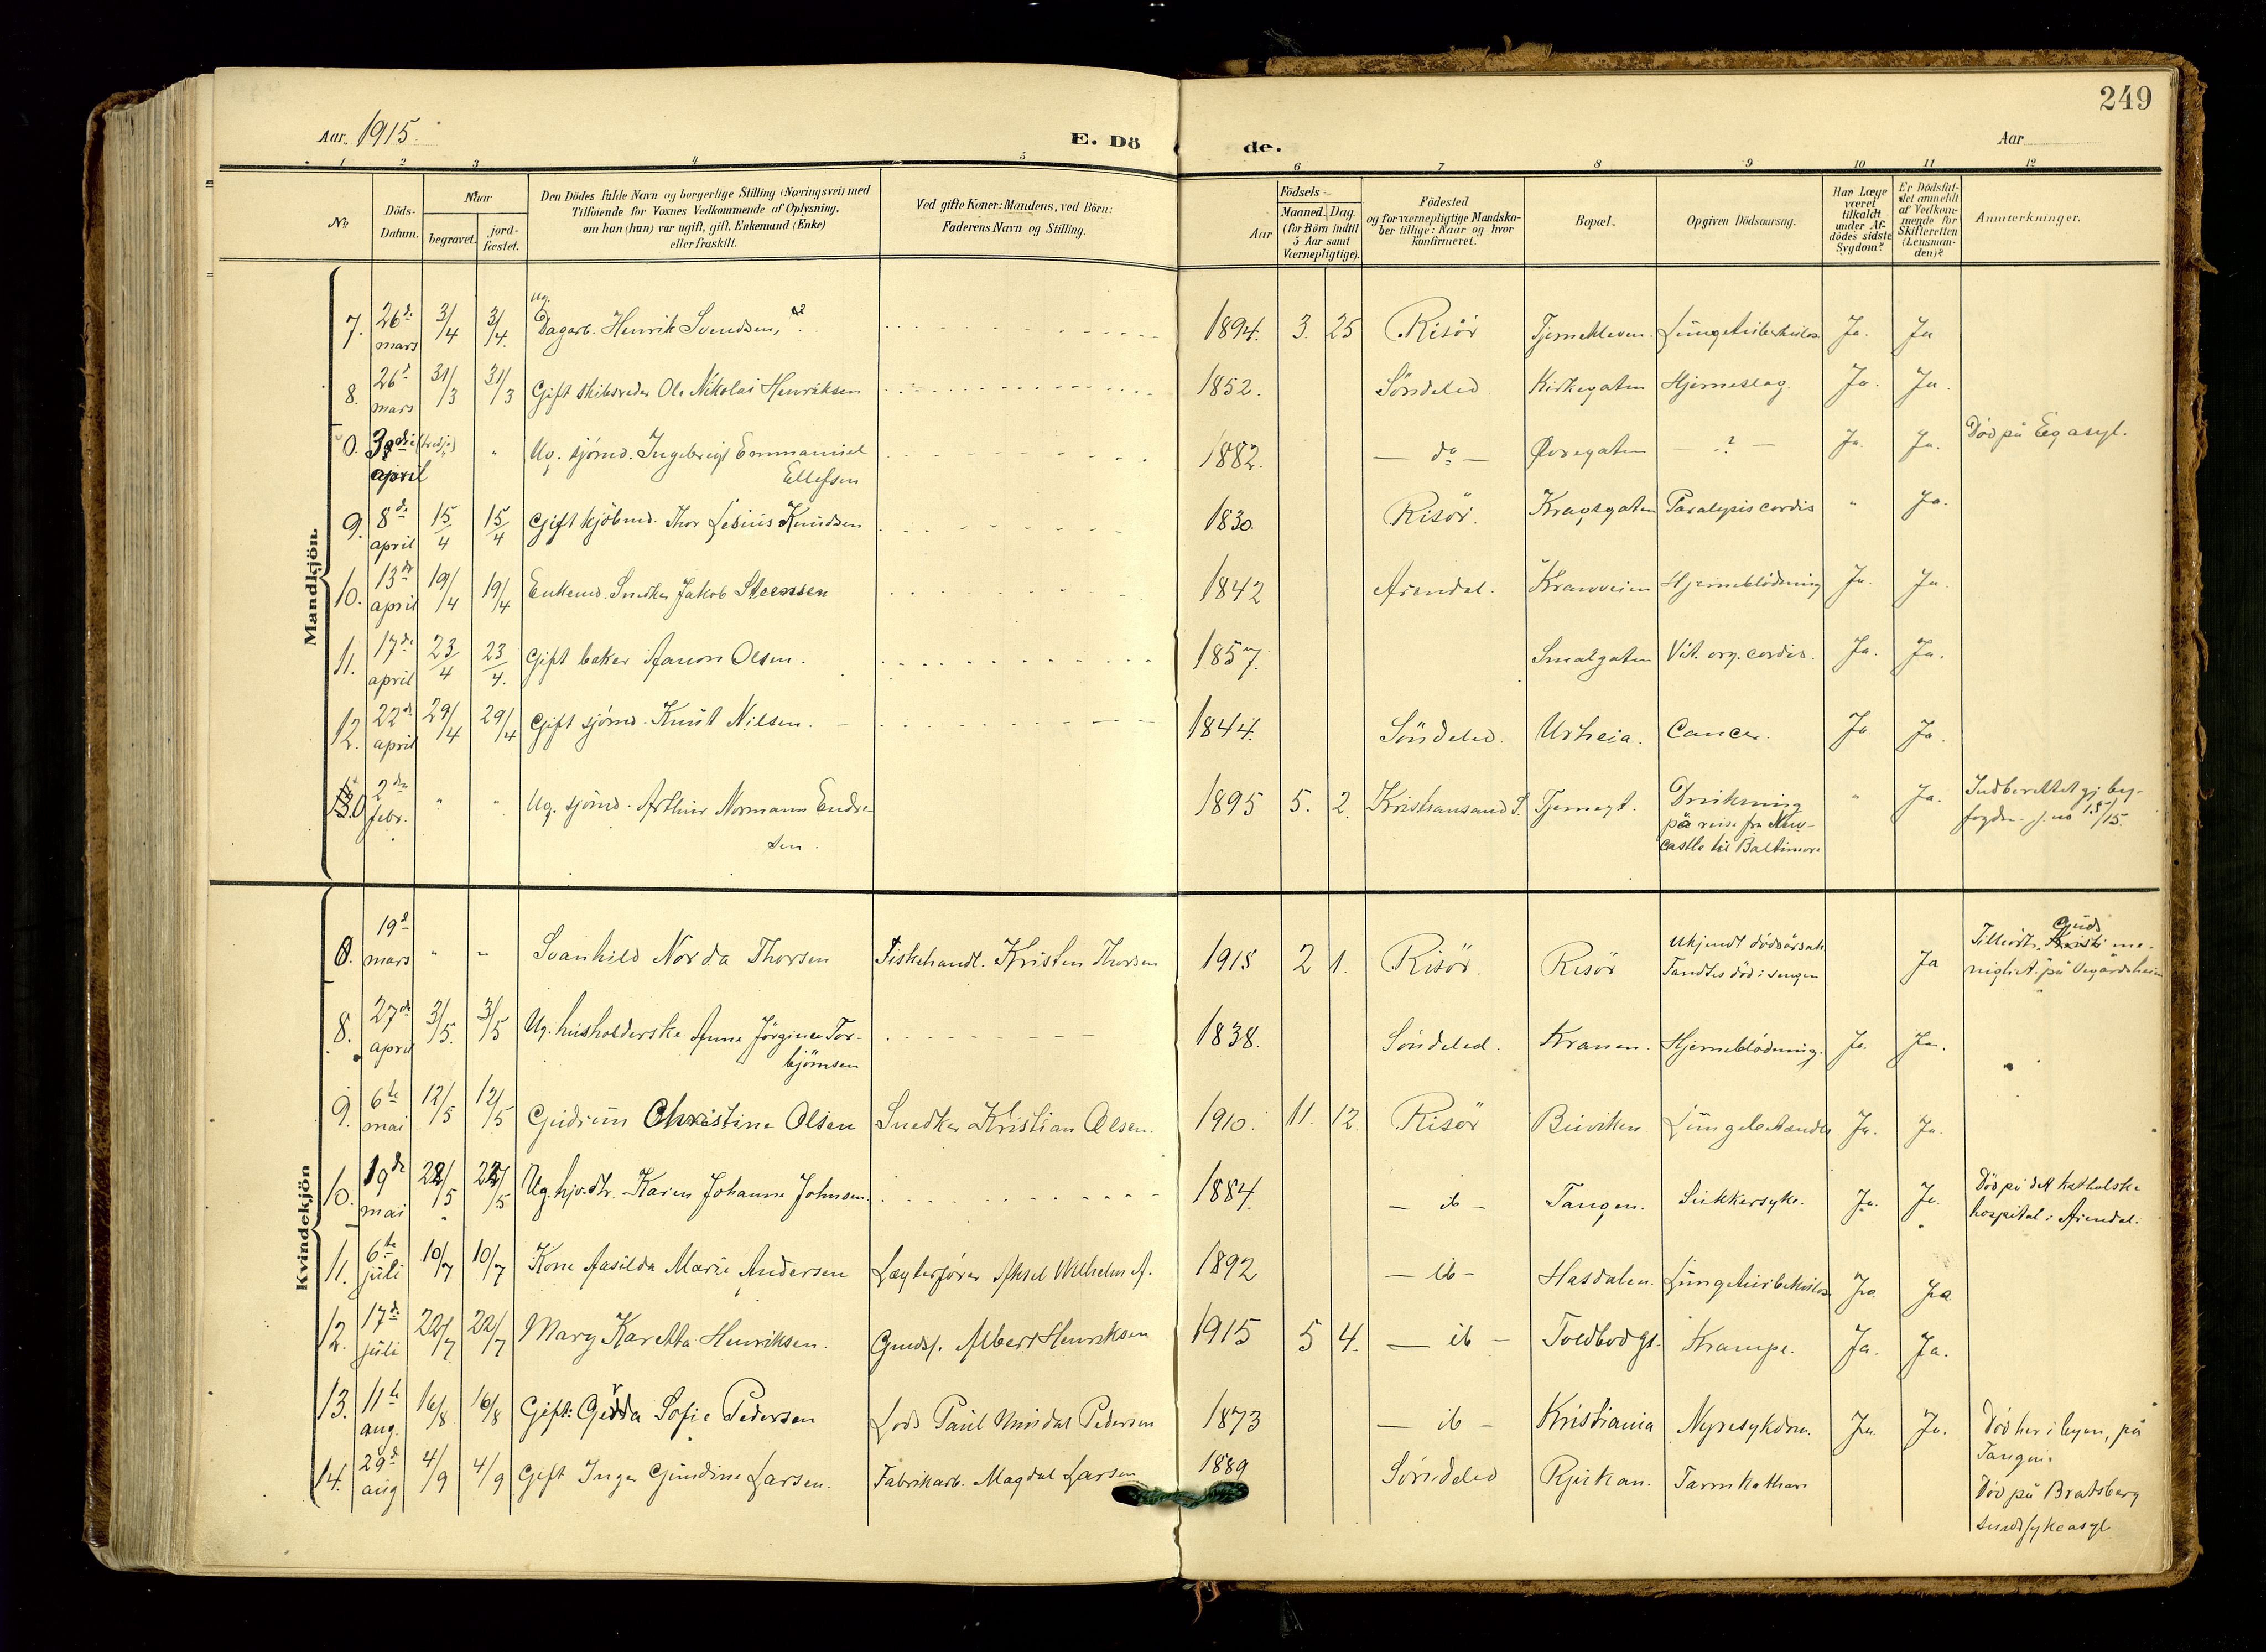 249
Aar. 1915.
E. Dö
de.
Aar
1 2 3 4 5 6 7 8 9 10 11 12
No.
Döds-
Datum.
Naar
begravet.
jord-
fæstet.
Den Dödes fulde Navn og borgerlige Stilling (Næringsvei) med
Tilföiende for Voxnes Vedkommende af Oplysning.
om han (hun) var ugift, gift, Enkemand (Enke)
eller fraskilt.
Ved gifte Koner: Mandens, ved Börn:
Faderens Navn og Stilling.
Födsels-
Aar
Maaned. Dag.
(for Börn indtil
5 Aar samt
Værnepligtige).
Födested
og for værnepligtige Mandska-
ber tillige: Naar og hvor
konfirmeret.
Bopæl.
Opgiven Dödsaarsag.
Har Læge
været
tilkaldt
under Af-
dödes sidste
Sygdom?
Er Dödsfal-
det anmeldt
af Vedkom-
mende for
Skifteretten
(Lensman-
den)?
Anmærkninger.
Mandkjön.
7. 26de mars 3/4 3/4. Ug. Dagarb. Henrik Svendsen, 1894. 3. 25 Risör Tjernkleven. Lungetuberkulose Ja. Ja
8. 26de mars 31/3 31/3 Gift skibsreder Ole Nikolai Henriksen 1852. Söndeled Kirkegaten Hjerneslag. Ja. Ja.
0. 3die (tredje) april " Ug. sjömd. Ingebrigt Emmanuel
Ellefsen 1882. — do — Øvregaten — ? — Ja. Ja. Död på Eg asyl.
9. 8de april 15/4 15/4 Gift kjöbmd. Thor Knudsen 1830 Risör. Kragsgaten Paralysis cordis " Ja.
10. 13de april 19/4 19/4 Enkemd. Snedker Jakob Steensen 1842 Arendal. Kranveien Hjerneblödning Ja. Ja.
11. 17de april 23/4 23/4. Gift baker Aanon Olsen. 1857. Smalgaten Vit. org. cordis. Ja. Ja.
12. 22de april 29/4 29/4 Gift sjömd. Knut Nilsen. 1844. Söndeled. Urheia. Cancer. Ja Ja.
0 2den febr. " " Ug. sjömd. Arthur Normann Endre-
sen. 1895 5. 2. Kristiansand S. Tjerngt. Drukning
på reise fra New-
castle til Baltimore " Ja. Indberettet gj. by-
fogden j. no 15/15.
Kvindekjön
0. 19de mars " " Svanhild Norda Thorsen Fiskehandl. Kristen Thorsen 1915 2 1. Risör. Risör Ukjendt dödsårsak
Fandtes död i sengen Ja Tilhört Guds me-
nighet på Vegårdsheien
8. 27de april 3/5. 3/5 Ug. husholderske Anne Jörgine Tor-
björnsen 1838. Söndeled. Kranen. Hjerneblödning. Ja. Ja.
9. 6te mai 12/5 12/5 Gudrun Christine Olsen Snedker Kristian Olsen. 1910. 11. 12. Risör Buviken Ja. Ja.
10. 19de mai 22/5 22/5 Ug. hjv. dtr. Karen Johanne Johnsen. 1884. — ib — Tangen. Sukkersyke. Ja. Ja. Död på det katholske
hospital i Arendal.
11. 6te juli 10/7 10/7 Kone Aasilda Marie Andersen Lægterförer Aksel Wilhelm A. 1892 — ib — Hasdalen. Lungetuberkulose Ja Ja
12. 17de juli 22/7 22/7 Mary Karetta Henriksen. Albert Henriksen 1915 5 4. — ib — Toldbodgt. Krampe. Ja. Ja.
13. 11te aug. 16/8 16/8 Gift: Gerda Sofie Pedersen Lods Paul Pedersen 1873 — ib — Kristiania Nyresykdom. Ja. Ja. Död her i byen, på
Tangen.
14. 29de aug 4/9 4/9 Gift Inger Gundine Larsen. Fabrikarb. Magdal Larsen 1889 Söndeled Rjukan. Tarmkathar Död på Bratsberg
sindssykeasyl.